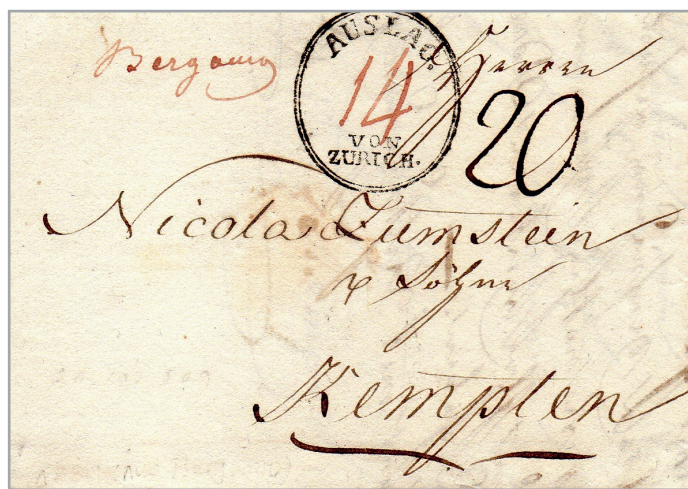 Bergamo
AUSLAG.
14
VON
ZURICH.
Herren
20
Nicola Zumstein
& Söhne
Kempten